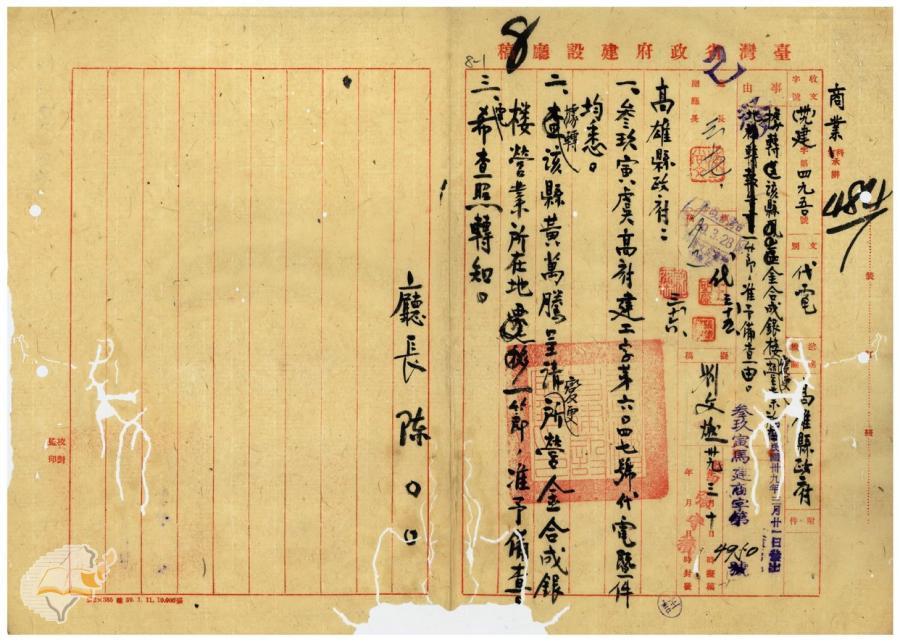 臺灣省政府建設廳稿
8
8-1
商業
科
承辦
484
收文
字號
莞建
字第
四九五〇
號
文別
代電
送達
機關
高雄縣政府
附件
事由
據轉該縣鳳山區金合成銀樓變更
一節准予備查由。
廳長
副廳長
39.3.28
代
劉文
卅九
三
十
參玖寅馬建商字第4950號
民國卅九年三月廿一日發出
高雄縣政府:
一、參玖寅虞高府建工字第六〇四七號代電暨件
均悉。
二、據轉該縣黃萬騰呈請變更所營金合成銀
樓營業所在地一節,准予備查。
三、希查照轉知。
廳長 陳〇〇
校對
監印
裝